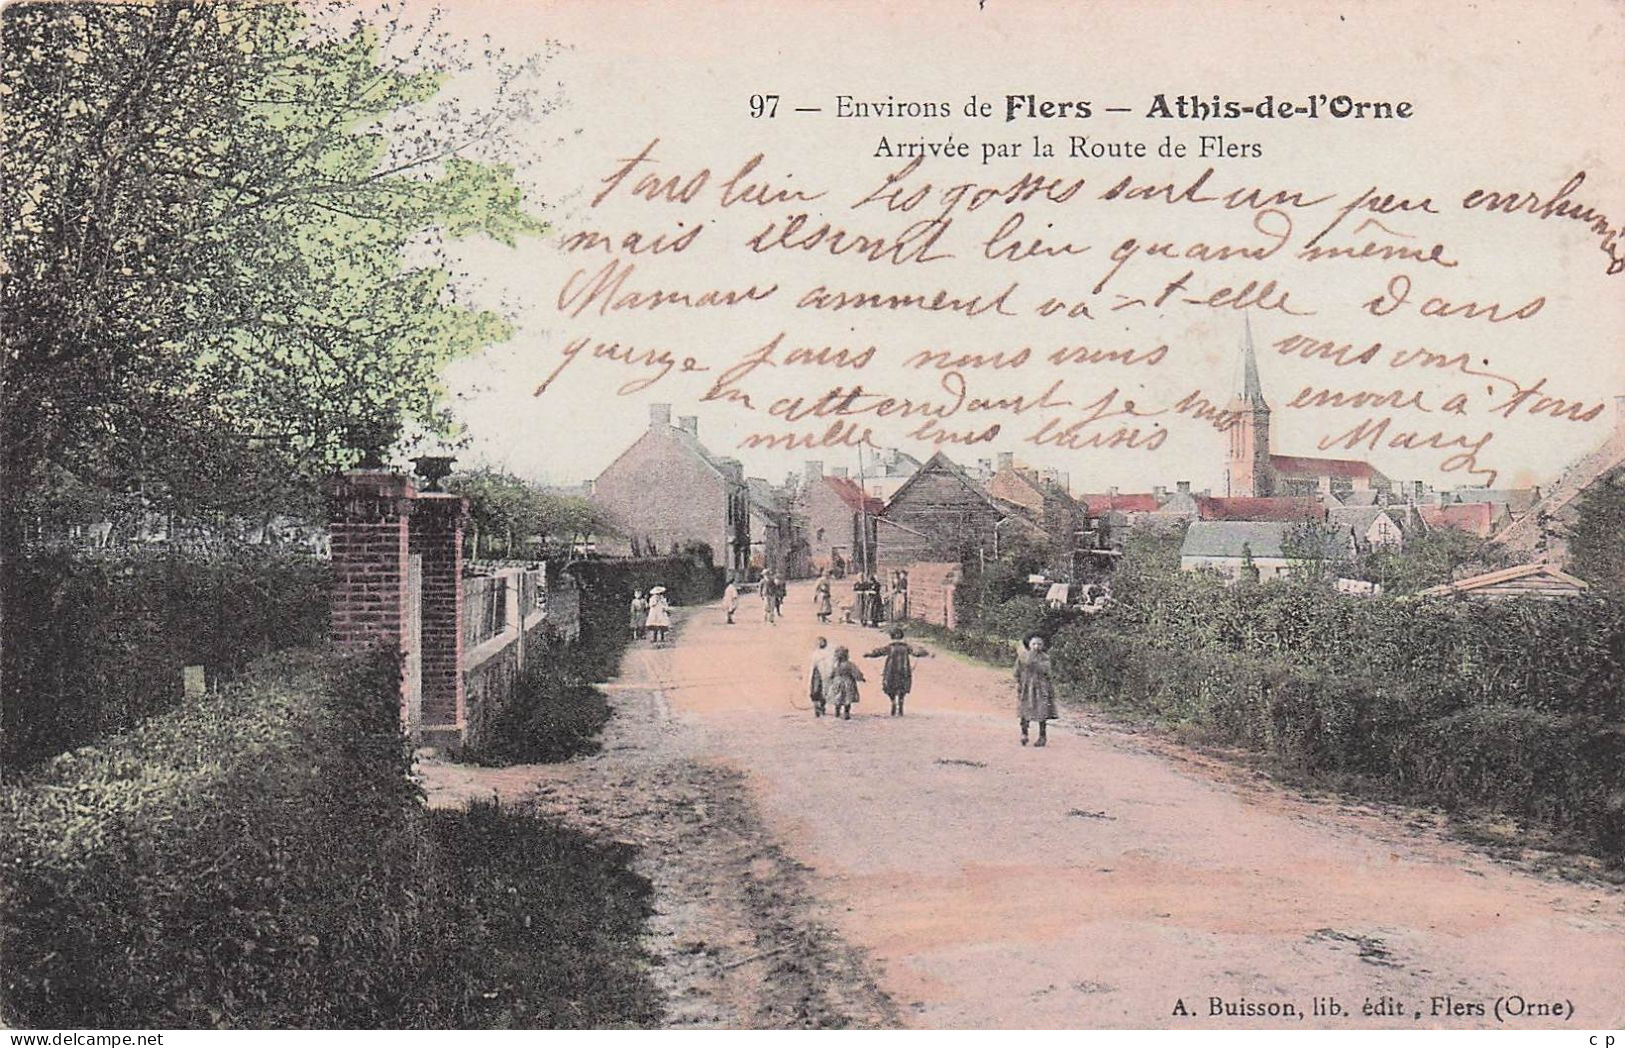 97 — Environs de Flers — Athis-de-l'Orne
Arrivée par la Route de Flers
tous bien Les gosses sont un peu enrhumés
mais ils vont bien quand même
Maman comment va-t-elle Dans
quinze jours nous irons vous voir.
en attendant je vous envoie à tous
mille bons baisers Mary
A. Buisson, lib. édit., Flers (Orne)
delcampe.net
c p